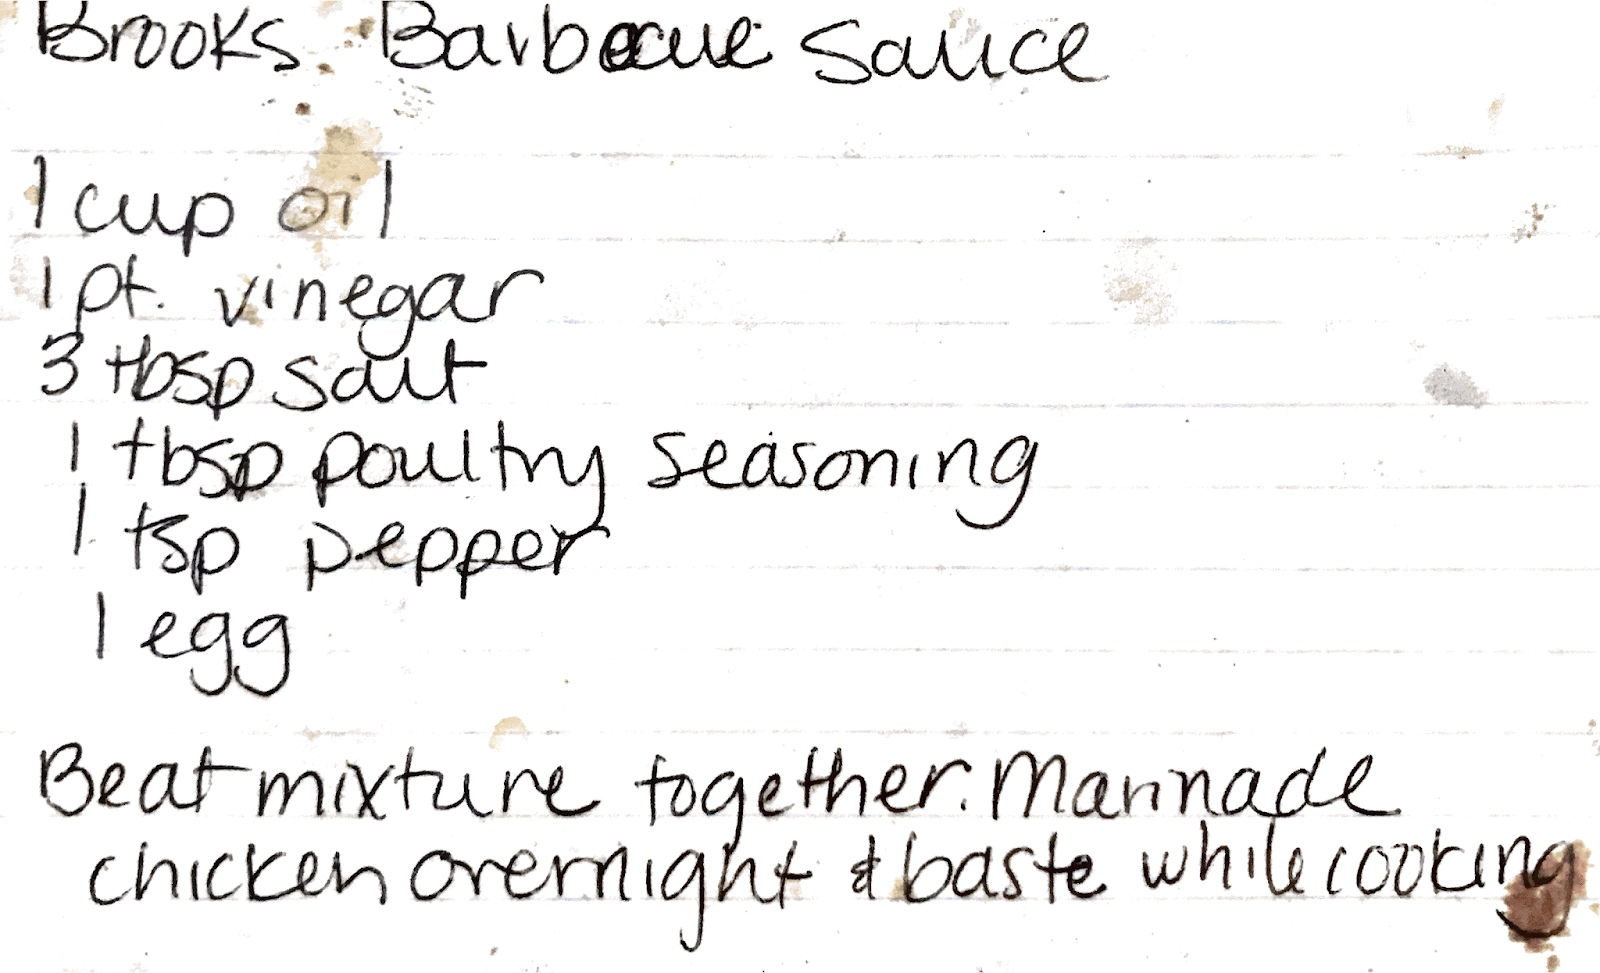 Brooks Barbecue Sauce
1 cup oil
1 pt. vinegar
3 tbsp salt
1 tbsp poultry seasoning
1 tsp pepper
1 egg
Beat mixture together. Marinade
chicken overnight & baste while cooking